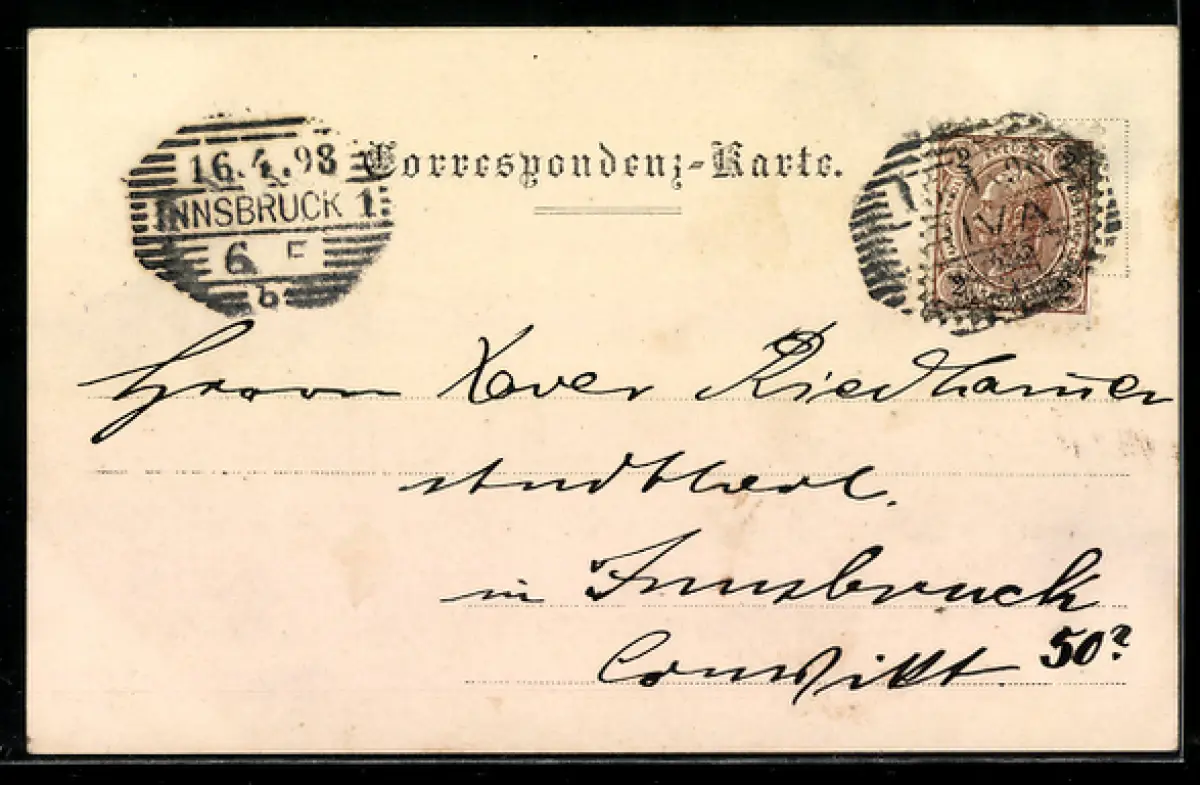 16.4.98
INNSBRUCK 1.
6 F
b
Correspondenz-Karte.
2 2
IVA
2 2
Herrn Xaver Riedhamer
stud theol.
in Innsbruck
Convikt 50?